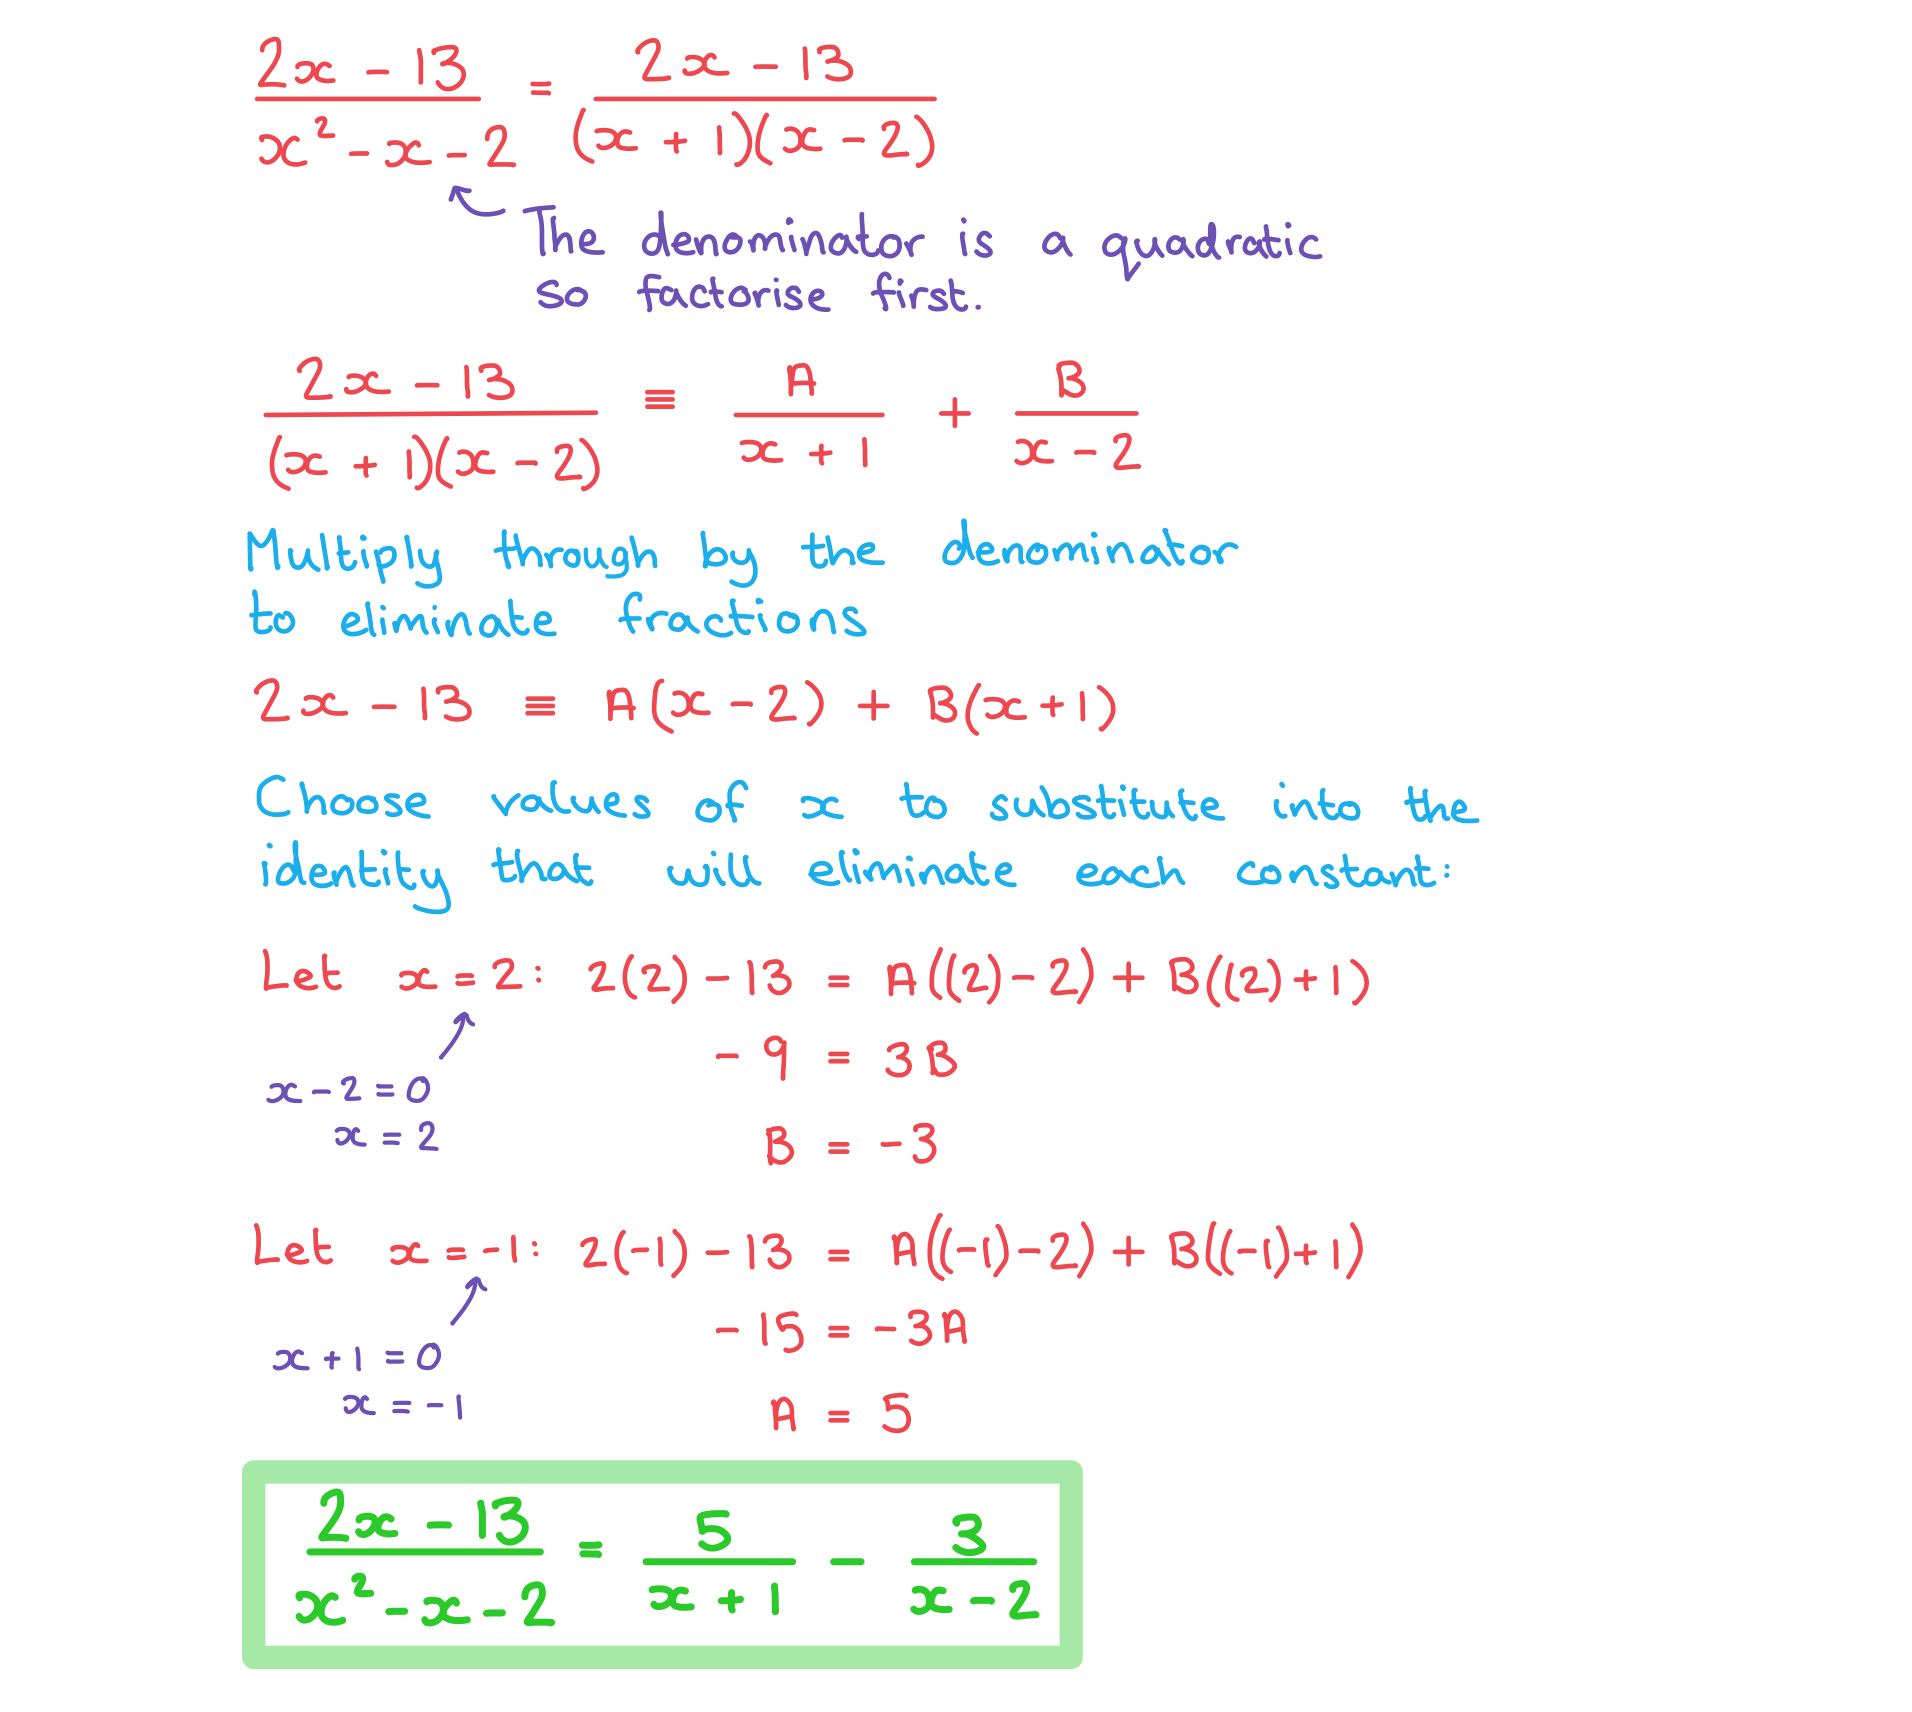 2x - 13 / x² - x - 2 = 2x - 13 / (x + 1)(x - 2)
The denominator is a quadratic
so factorise first.
2x - 13 / (x + 1)(x - 2) ≡ A / x + 1 + B / x - 2
Multiply through by the denominator
to eliminate fractions
2x - 13 ≡ A(x - 2) + B(x + 1)
Choose values of x to substitute into the
identity that will eliminate each constant:
Let x = 2: 2(2) - 13 = A((2) - 2) + B((2) + 1)
- 9 = 3B
x - 2 = 0
x = 2
B = -3
Let x = -1: 2(-1) - 13 = A((-1) - 2) + B((-1) + 1)
- 15 = -3A
x + 1 = 0
x = -1
A = 5
2x - 13 / x² - x - 2 = 5 / x + 1 - 3 / x - 2